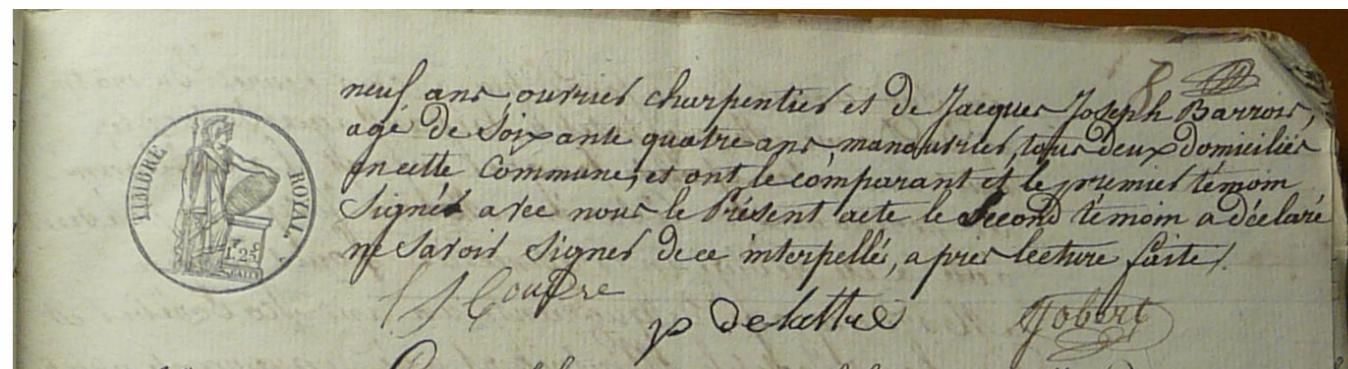 8
neuf ans, ouvrier charpentier et de Jacques Joseph Barrois,
agé de Soixante quatre ans, manouvrier, tous deux domiciliés
en cette Commune, et ont le comparant et le premier témoin
Signés avec nous le Présent acte le Second témoin a déclaré
ne Savoir Signer de ce interpellé, après lecture faite.
TIMBRE ROYAL.
1.25
Coupre
p Delattre
Jobert